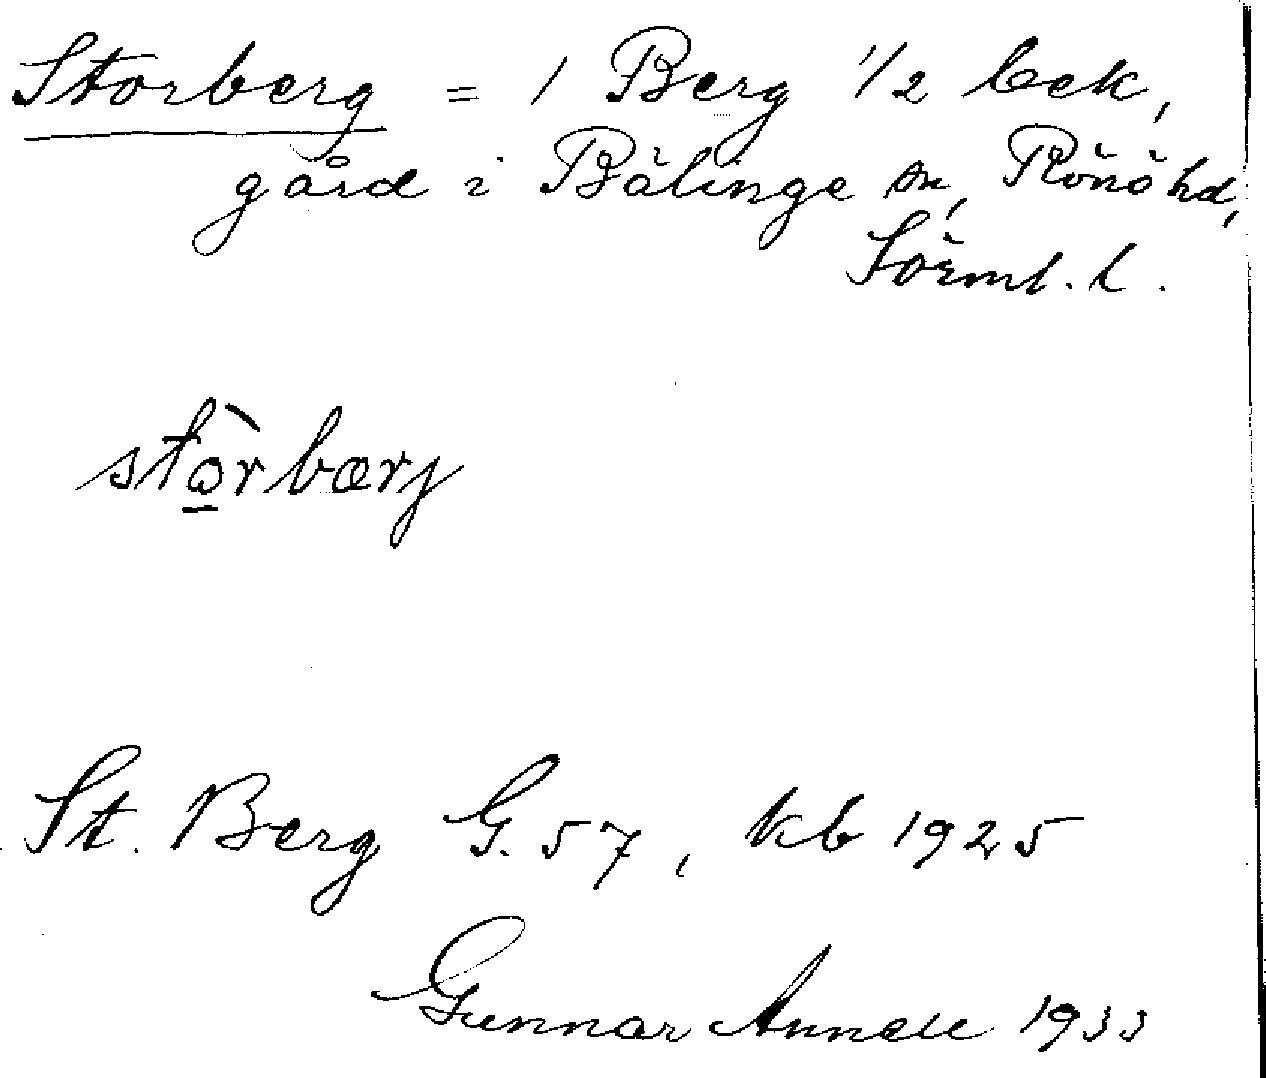 Storberg = 1 Berg 1/2 bek,
gård i Bälinge sn, Rönö hd,
Sörml. l.
stȯ̱̀rbærj
St. Berg G. 57, kb 1925
Gunnar Annell 1933